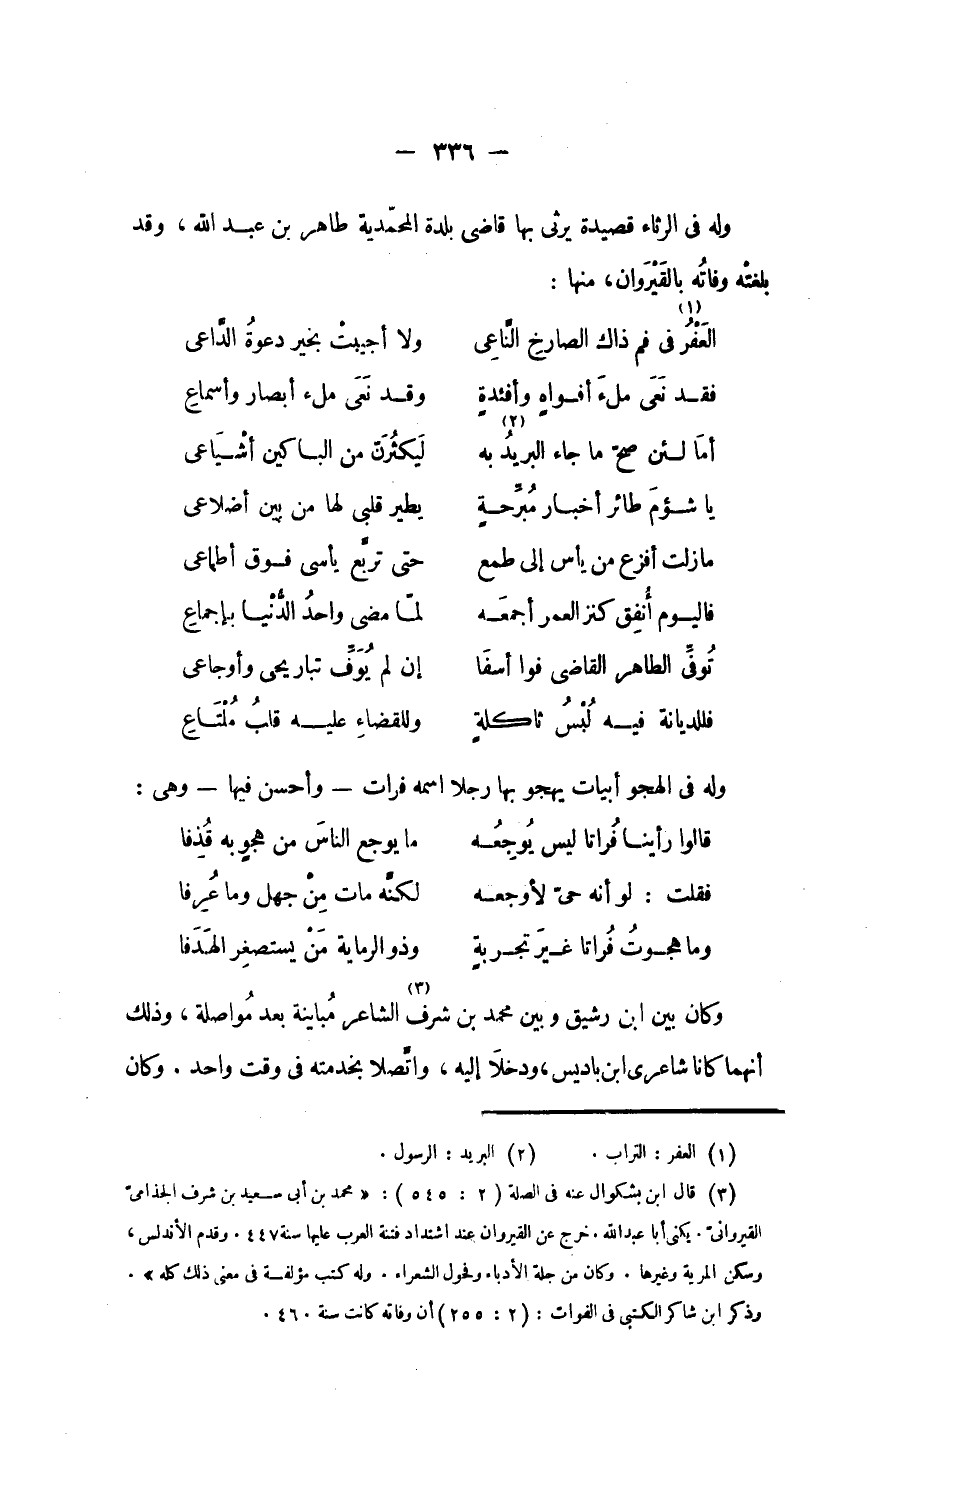 — ٣٣٦ —
وله فى الرثاء قصيدة يرثى بها قاضى بلدة المحمّدية طاهر بن عبد الله ، وقد
بلغتْه وفاتُه بالقَيْرَوان، منها :
العَفْرُ (١) فى فم ذاك الصارخِ النَّاعِى ولا أجيبتْ بخير دعوةُ الدَّاعى
فقد نَعَى ملءَ أفواهٍ وأفئدةٍ وقد نَعَى ملء أبصار وأسماعِ
أمَا لئن صحّ ما جاء البريدُ (٢) به لَيكثُرَنّ من الباكين أشْيَاعى
يا شؤمَ طائر أخبار مُبَرِّحةٍ يطير قلبى لها من بين أضلاعى
مازلت أفزع من يأس إلى طمع حتى تربَّع يأسى فوق أطماعى
فاليوم أُنفِق كنز العمر أجمعَه لمّا مضى واحدُ الدُّنْيا بإجماعِ
تُوفِّىَ الطاهر القاضى فوا أسفَا إن لم يُوَفِّ تباريحى وأوجاعى
فللديانة فيه لُبْسُ ثاكلةٍ وللقضاءِ عليه قلبُ مُلْتَاعِ
وله فى الهجو أبيات يهجو بها رجلا اسمه فرات — وأحسن فيها — وهى :
قالوا رأينا فُراتا ليس يُوجِعُه ما يوجع الناسَ من هجوٍ به قُذِفا
فقلت : لو أنه حىّ لأوجعه لكنَّه مات مِنْ جهل وما عُرِفا
وما هجوتُ فُراتا غيرَ تجربةٍ وذو الرماية مَنْ يستصغِر الهَدَفا
وكان بين ابن رشيق وبين محمد بن شرف (٣) الشاعر مُباينة بعد مُواصلة ، وذلك
أنهما كانا شاعرى ابن باديس، ودخلَا إليه ، واتَّصلا بخدمته فى وقت واحد . وكان
(١) العفر : التراب . (٢) البريد : الرسول .
(٣) قال ابن بشكوال عنه فى الصلة ( ٢ : ٥٤٥ ) : « محمد بن أبى سعيد بن شرف الجذامىّ
القيروانىّ . يكنى أبا عبد الله . خرج عن القيروان عند اشتداد فتنة العرب عليها سنة ٤٤٧ . وقدم الأندلس ،
وسكن المرية وغيرها . وكان من جلة الأدباء وفحول الشعراء . وله كتب مؤلفة فى معنى ذلك كله » .
وذكر ابن شاكر الكتبى فى الفوات : ( ٢ : ٢٥٥ ) أن وفاته كانت سنة ٤٦٠ .